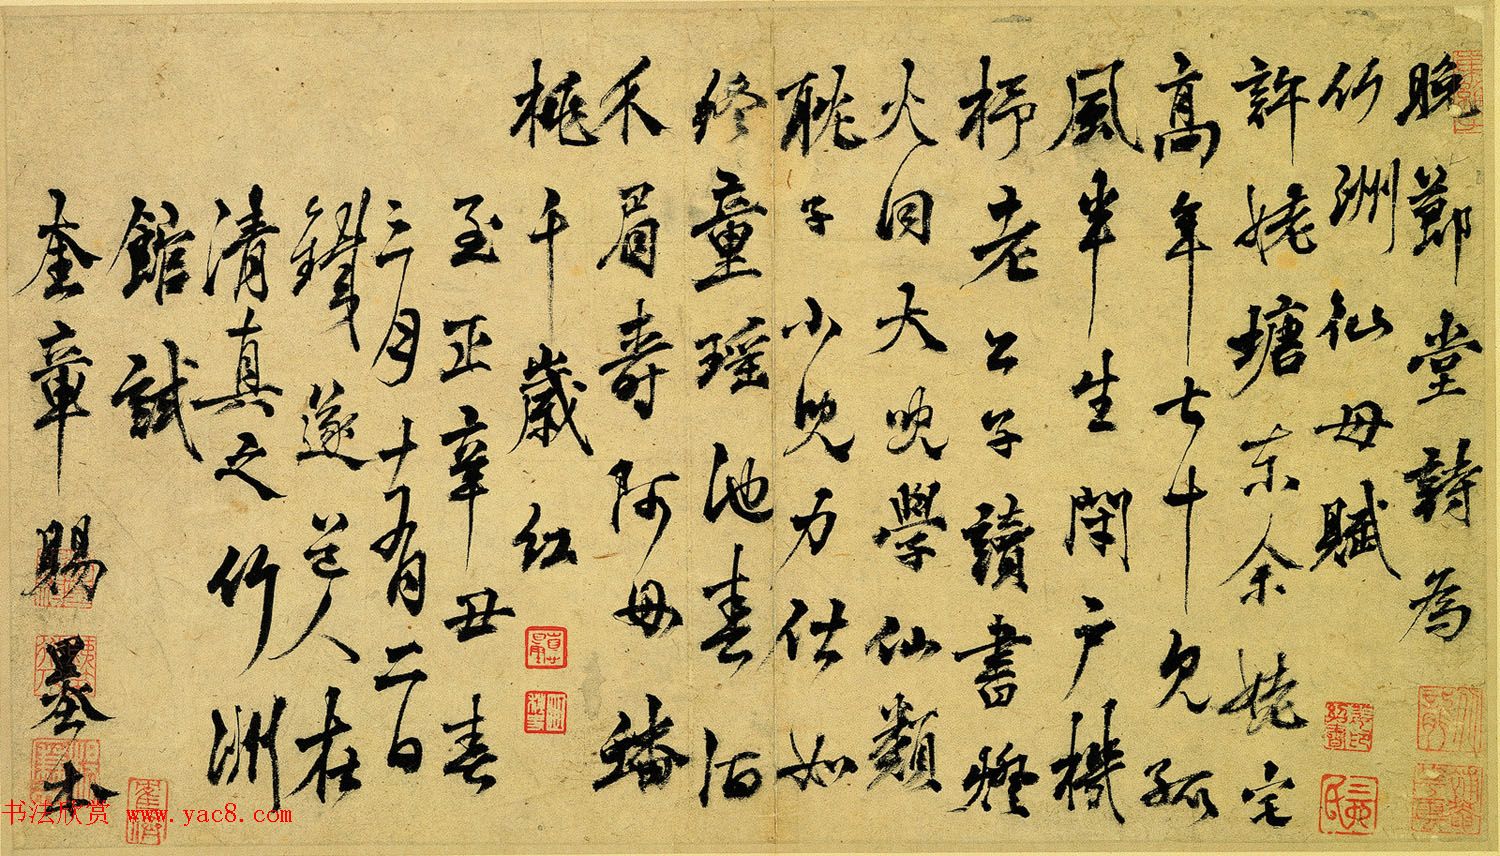 晚節堂詩為
竹洲仙母賦
許姥塘東余姥宅
高年七十九孤
風半生閉戶機
杼老公子讀書燈
火同大兒學仙類
耽子小兒力仕如
終童瑤池春酒
禾眉壽阿母蟠
桃千歲紅
至正辛丑春
三月十有二日
鐵遂道人在
清真之竹洲
館試
奎章賜墨本
书法欣赏 www.yac8.com